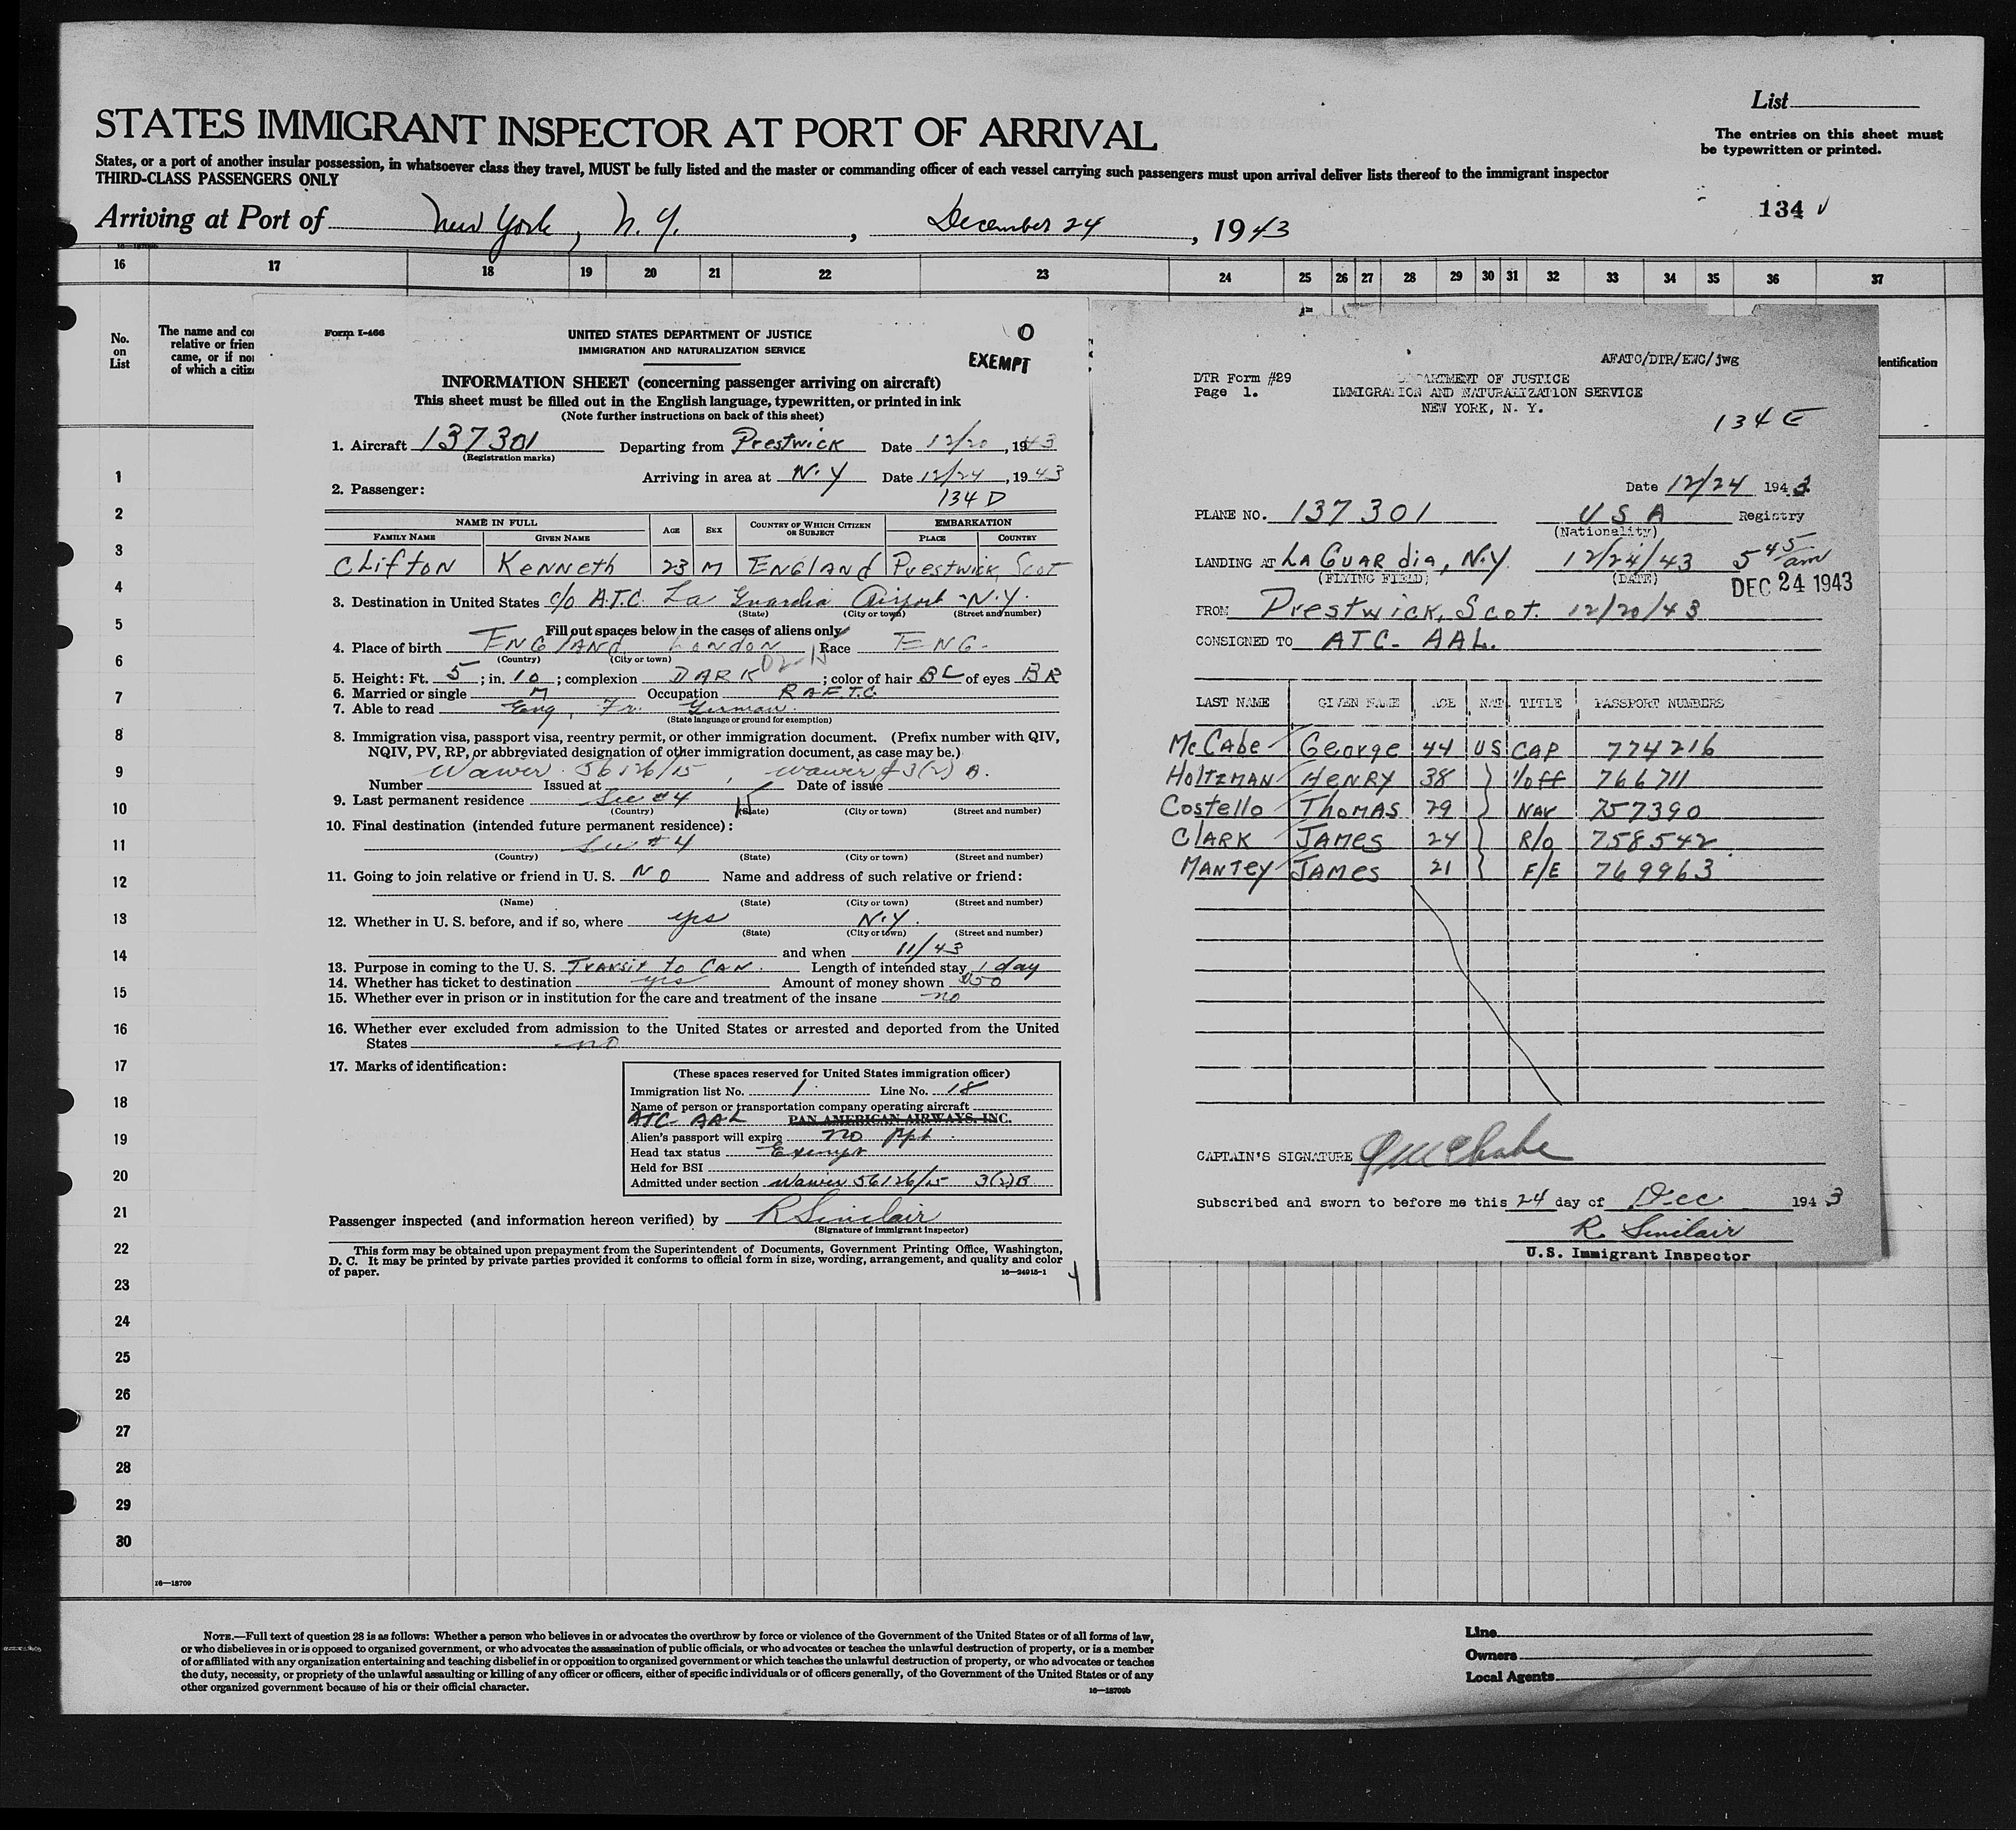 List
STATES IMMIGRANT INSPECTOR AT PORT OF ARRIVAL
The entries on this sheet must
be typewritten or printed.
States, or a port of another insular possession, in whatsoever class they travel, MUST be fully listed and the master or commanding officer of each vessel carrying such passengers must upon arrival deliver lists thereof to the immigrant inspector
THIRD-CLASS PASSENGERS ONLY
134
Arriving at Port of New York, N.Y., December 24, 1943
16 17 18 19 20 21 22 23 24 25 26 27 28 29 30 31 32 33 34 35 36 37
No.
on
List
The name and co
relative or frien
came, or if no
of which a citiz
dentification
1
2
3
4
5
6
7
8
9
10
11
12
13
14
15
16
17
18
19
20
21
22
23
24
25
26
27
28
29
30
16—18709
Form I-466
UNITED STATES DEPARTMENT OF JUSTICE
IMMIGRATION AND NATURALIZATION SERVICE
O
EXEMPT
INFORMATION SHEET (concerning passenger arriving on aircraft)
This sheet must be filled out in the English language, typewritten, or printed in ink
(Note further instructions on back of this sheet)
1. Aircraft 137301 Departing from Prestwick Date 12/20, 1943
(Registration marks)
Arriving in area at N.Y Date 12/24, 1943
2. Passenger: 134 D
NAME IN FULL AGE SEX COUNTRY OF WHICH CITIZEN OR SUBJECT EMBARKATION
FAMILY NAME GIVEN NAME PLACE COUNTRY
Clifton Kenneth 23 M ENGLAND Prestwick, Scot
3. Destination in United States c/o A.T.C. La Guardia Airport - N.Y.
(State) (City or town) (Street and number)
Fill out spaces below in the cases of aliens only
4. Place of birth ENGLAND LONDON Race ENG-
(Country) (City or town)
5. Height: Ft. 5; in. 10; complexion DARK; color of hair BL of eyes BR
6. Married or single M Occupation R.A.F.T.C.
7. Able to read Eng, Fr. German.
(State language or ground for exemption)
8. Immigration visa, passport visa, reentry permit, or other immigration document. (Prefix number with QIV,
NQIV, PV, RP, or abbreviated designation of other immigration document, as case may be.)
Waiver 56126/15, waiver of 3(2) B.
Number Issued at Date of issue
9. Last permanent residence See #4
(Country) (State) (City or town) (Street and number)
10. Final destination (intended future permanent residence):
See #4
(Country) (State) (City or town) (Street and number)
11. Going to join relative or friend in U. S. NO Name and address of such relative or friend:
(Name) (State) (City or town) (Street and number)
12. Whether in U. S. before, and if so, where yes N.Y.
(State) (City or town) (Street and number)
and when 11/43
13. Purpose in coming to the U. S. Transit to Can. Length of intended stay 1 day
14. Whether has ticket to destination yes Amount of money shown $50
15. Whether ever in prison or in institution for the care and treatment of the insane no
16. Whether ever excluded from admission to the United States or arrested and deported from the United
States no
17. Marks of identification:
(These spaces reserved for United States immigration officer)
Immigration list No. 1. Line No. 18
Name of person or transportation company operating aircraft
ATC AAL PAN AMERICAN AIRWAYS, INC.
Alien's passport will expire no ppt.
Head tax status Exempt
Held for BSI
Admitted under section Waiver 56126/15 3(2)B
Passenger inspected (and information hereon verified) by R Sinclair
(Signature of immigrant inspector)
This form may be obtained upon prepayment from the Superintendent of Documents, Government Printing Office, Washington,
D. C. It may be printed by private parties provided it conforms to official form in size, wording, arrangement, and quality and color
of paper. 16—24915-1
AFATC/DTR/EWC/jwg
DTR Form #29
Page 1.
DEPARTMENT OF JUSTICE
IMMIGRATION AND NATURALIZATION SERVICE
NEW YORK, N. Y.
134 E
Date 12/24 1943
PLANE NO. 137301 USA Registry
(Nationality)
LANDING AT LA GUARdia, N.Y. 12/24/43 5 45 am
(FLYING FIELD) (DATE)
DEC 24 1943
FROM Prestwick, Scot. 12/20/43
CONSIGNED TO ATC- AAL.
LAST NAME GIVEN NAME AGE NAT TITLE PASSPORT NUMBERS
McCabe George 44 US CAP 774216
Holtzman HENRY 38 1/off 766711
Costello THOMAS 29 NAV 757390
CLARK JAMES 24 R/O 758542
MANTEY JAMES 21 F/E 769963
CAPTAIN'S SIGNATURE G McCabe
Subscribed and sworn to before me this 24 day of Dec 1943
R. Sinclair
U.S. Immigrant Inspector
NOTE.—Full text of question 28 is as follows: Whether a person who believes in or advocates the overthrow by force or violence of the Government of the United States or of all forms of law,
or who disbelieves in or is opposed to organized government, or who advocates the assassination of public officials, or who advocates or teaches the unlawful destruction of property, or is a member
of or affiliated with any organization entertaining and teaching disbelief in or opposition to organized government or which teaches the unlawful destruction of property, or who advocates or teaches
the duty, necessity, or propriety of the unlawful assaulting or killing of any officer or officers, either of specific individuals or of officers generally, of the Government of the United States or of any
other organized government because of his or their official character.
16—18709b
Line
Owners
Local Agents